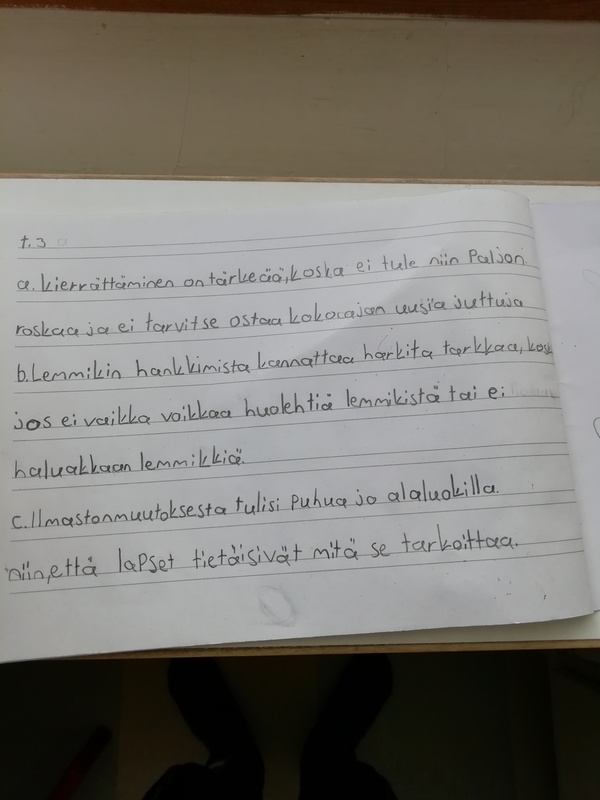 t.3
a. kierrättäminen on tärkeää, koska ei tule niin Paljon
roskaa ja ei tarvitse ostaa kokoajan uusia juttuja
b. Lemmikin hankkimista kannattaa harkita tarkkaa, kosk
jos ei vaikka voikkaa huolehtiä lemmikistä tai ei
haluakkaan lemmikkiä.
c. Ilmastonmuutoksesta tulisi Puhua jo alaluokilla.
niin, että lapset tietäisivät mitä se tarkoittaa.